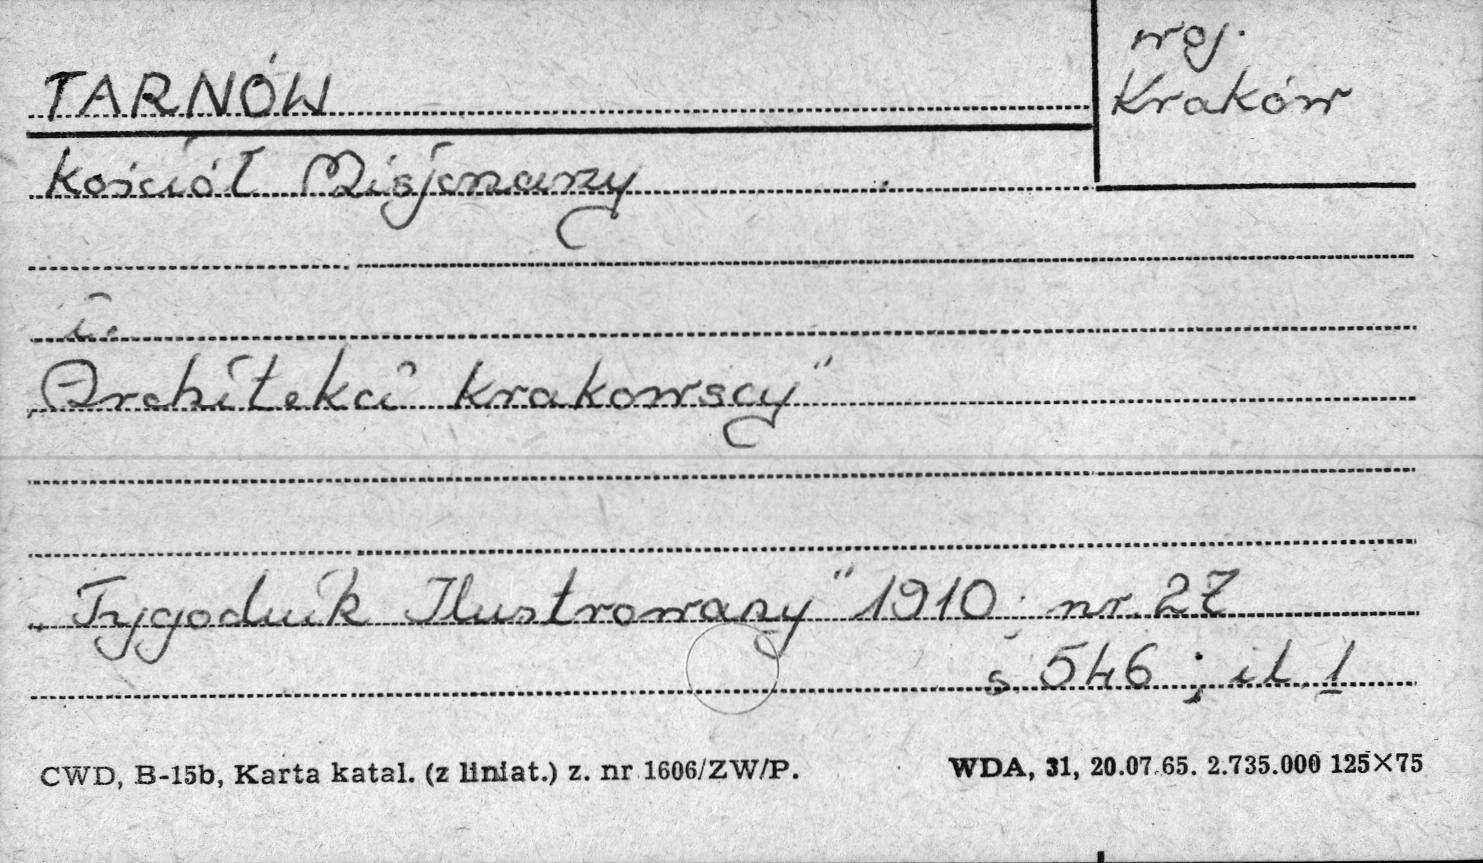 TARNÓW
woj.
Kraków
kościół Misjonarzy
i.
„Architekci krakowscy"
„Tygodnik Ilustrowany" 1910; nr. 27
s. 546; il. 1
CWD, B-15b, Karta katal. (z liniat.) z. nr 1606/ZW/P.
WDA, 31, 20.07.65. 2.735.000 125×75